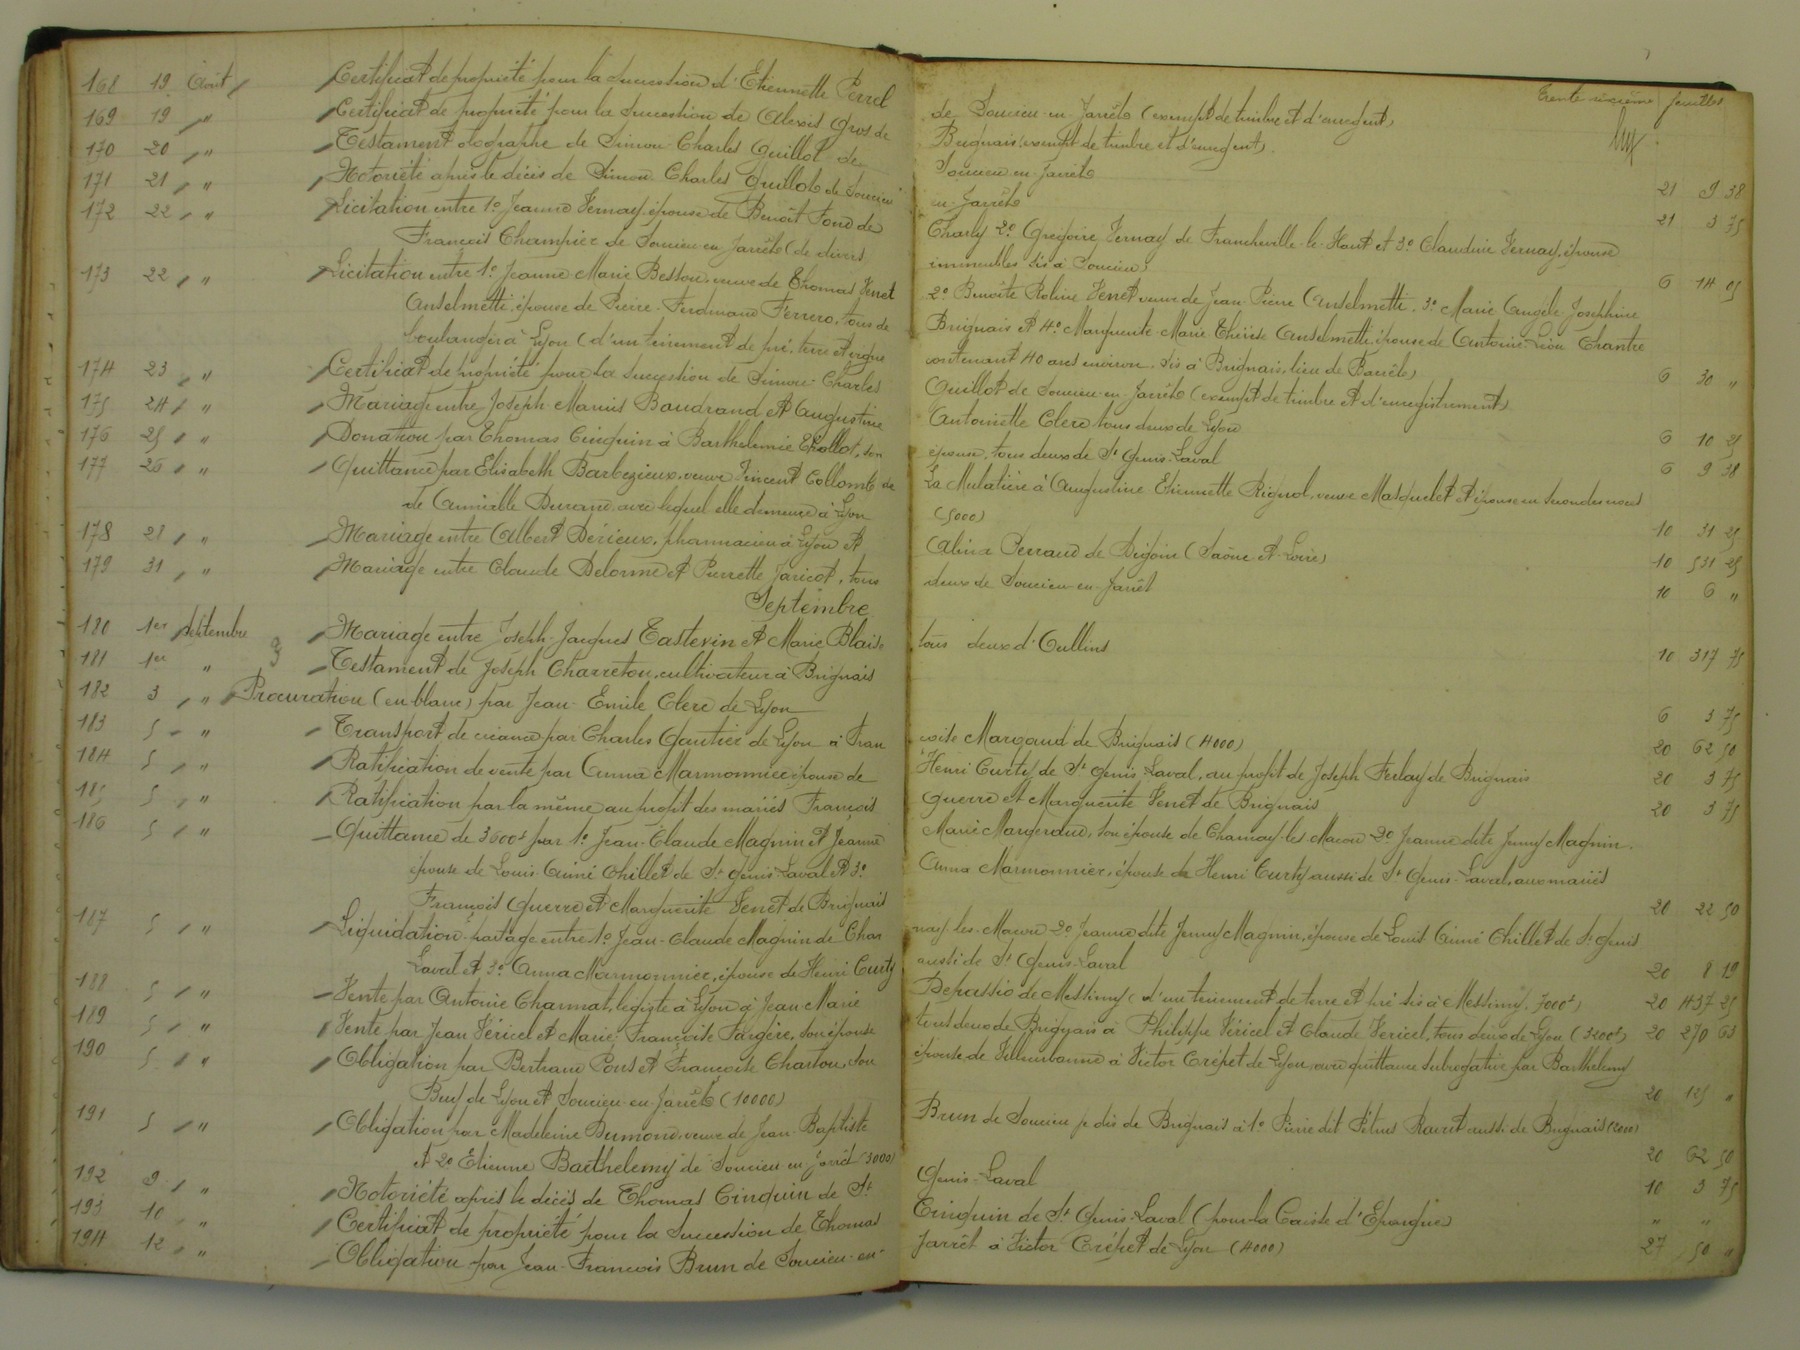 168 19 Août Certificat de propriété pour la succession d'Etiennette Perrel
169 19 " Certificat de propriété pour la succession de Alexis Gros de
170 20 " Testament olographe de Simon-Charles Guillot de
171 21 " Notoriété après le décès de Simon Charles Guillot de Soucieu
172 22 " Licitation entre 1º Jeanne Fernay, épouse de Benoît Fond de
François Champier de Soucieu-en-Jarrêt (de divers
173 22 " Licitation entre 1º Jeanne Marie Besson, veuve de Thomas Venet
Anselmetti, épouse de Pierre-Ferdinand Ferrero, tous de
boulanger à Lyon (d'un tènement de pré, terre et vigne
174 23 " Certificat de propriété pour la succession de Simon-Charles
175 24 " Mariage entre Joseph-Marius Baudrand et Augustine
176 25 " Donation par Thomas Cinquin à Barthelemie Chollot, son
177 26 " Quittance par Elisabeth Barbezieux, veuve Vincent Collomb de
de Aimable Durand, avec lequel elle demeure à Lyon
178 28 " Mariage entre Albert Dérieux, pharmacien à Lyon et
179 31 " Mariage entre Claude Delorme et Pierrette Jaricot, tous
Septembre
180 1er Septembre Mariage entre Joseph-Jacques Tastevin et Marie Blaise
181 1er " Testament de Joseph Charreton, cultivateur à Brignais
182 3 " Procuration (en blanc) par Jean-Emile Clerc de Lyon
183 5 " Transport de créance par Charles Gautier de Lyon à Fran
184 5 " Ratification de vente par Anna Marmonnier épouse de
185 5 " Ratification par la même au profit des mariés François
186 5 " Quittance de 3600f par 1º Jean-Claude Magnin et Jeanne
épouse de Louis-Aimé Chillet de St Genis-Laval et 3º
François Guerre et Marguerite Venet de Brignais
187 5 " Liquidation-partage entre 1º Jean-Claude Magnin de Char
Laval et 3º Anna Marmonnier, épouse de Henri Curty
188 5 " Vente par Antoine Charmat, légiste à Lyon à Jean Marie
189 5 " Vente par Jean Véricel et Marie Françoise Fargère, son épouse
190 5 " Obligation par Bertrand Pons et Françoise Charton, son
Buy de Lyon et Soucieu-en-Jarrêt (10000)
191 5 " Obligation par Madeleine Dumond, veuve de Jean-Baptiste
et 2º Etienne Barthelemy de Soucieu en Jarrêt (3000)
192 9 " Notoriété après le décès de Thomas Cinquin de St
193 10 " Certificat de propriété pour la succession de Thomas
194 12 " Obligation par Jean-François Brun de Soucieu-en-
Trente-sixième feuillet
de Soucieu-en-Jarrêt (exempt de timbre et d'enregent)
Brignais (exempt de timbre et d'enregent)
Soucieu-en-Jarrêt 21 9 38
en-Jarrêt 21 3 75
Charly 2º Grégoire Fernay de Francheville-le-Haut et 3º Claudine Fernay, épouse
immeubles sis à Soucieu) 6 14 05
2º Benoîte Roline Venet veuve de Jean-Pierre Anselmetti, 3º Marie Angèle Joséphine
Brignais et 4º Marguerite-Marie Thérèse Anselmetti, épouse de Antoine-Léon Chantre
contenant 40 ares environ, sis à Brignais, lieu de Barrêt) 6 30 "
Guillot de Soucieu-en-Jarrêt (exempt de timbre et d'enregistrement)
Antoinette Clerc tous deux de Lyon 6 10 25
épouse, tous deux de St Genis-Laval 6 9 38
La Mulatière à Augustine Etiennette Rignol, veuve Masquelet et épouse en secondes noces
(5000) 10 31 25
Albina Perraud de Digoin (Saône et Loire) 10 531 25
deux de Soucieu-en-Jarrêt 10 6 "
tous deux d'Oullins 10 317 75
6 3 75
çoise Margaud de Brignais (4000) 20 62 50
Henri Curty de St Genis-Laval, au profit de Joseph Ferlay de Brignais 20 3 75
Guerre et Marguerite Venet de Brignais 20 3 75
Marie Margerand, son épouse de Charnay-les-Macon 2º Jeanne dite Jenny Magnin
Anna Marmonnier, épouse de Henri Curty aussi de St Genis-Laval, aux mariés
20 22 50
nay-les-Macon 2º Jeanne dite Jenny Magnin, épouse de Louis Aimé Chillet de St Genis
aussi de St Genis-Laval 20 8 19
Depassio de Messimy (d'un tènement de terre et pré sis à Messimy, 7000f) 20 437 25
tous deux de Brignais à Philippe Véricel et Claude Véricel, tous deux de Lyon (3200f) 20 270 63
épouse de Villeurbanne à Victor Crépet de Lyon, avec quittance subrogative par Barthelemy
20 125 "
Brun de Soucieu p dis de Brignais à 1º Pierre dit Pétrus Ravet aussi de Brignais (2000)
20 62 50
Genis-Laval 10 3 75
Cinquin de St Genis-Laval (pour la Caisse d'Epargne) " "
Jarrêt à Victor Crépet de Lyon (4000) 27 50 "